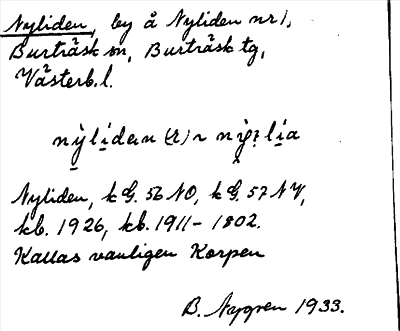 Nyliden, by å Nyliden nr 1,
Burträsk sn, Burträsk tg,
Västerb. l.
Nyliden, k G. 56 NO, k G. 57 NV,
kb. 1926, kb. 1911-1802.
Kallas vanligen Korpen
B. Nygren 1933.